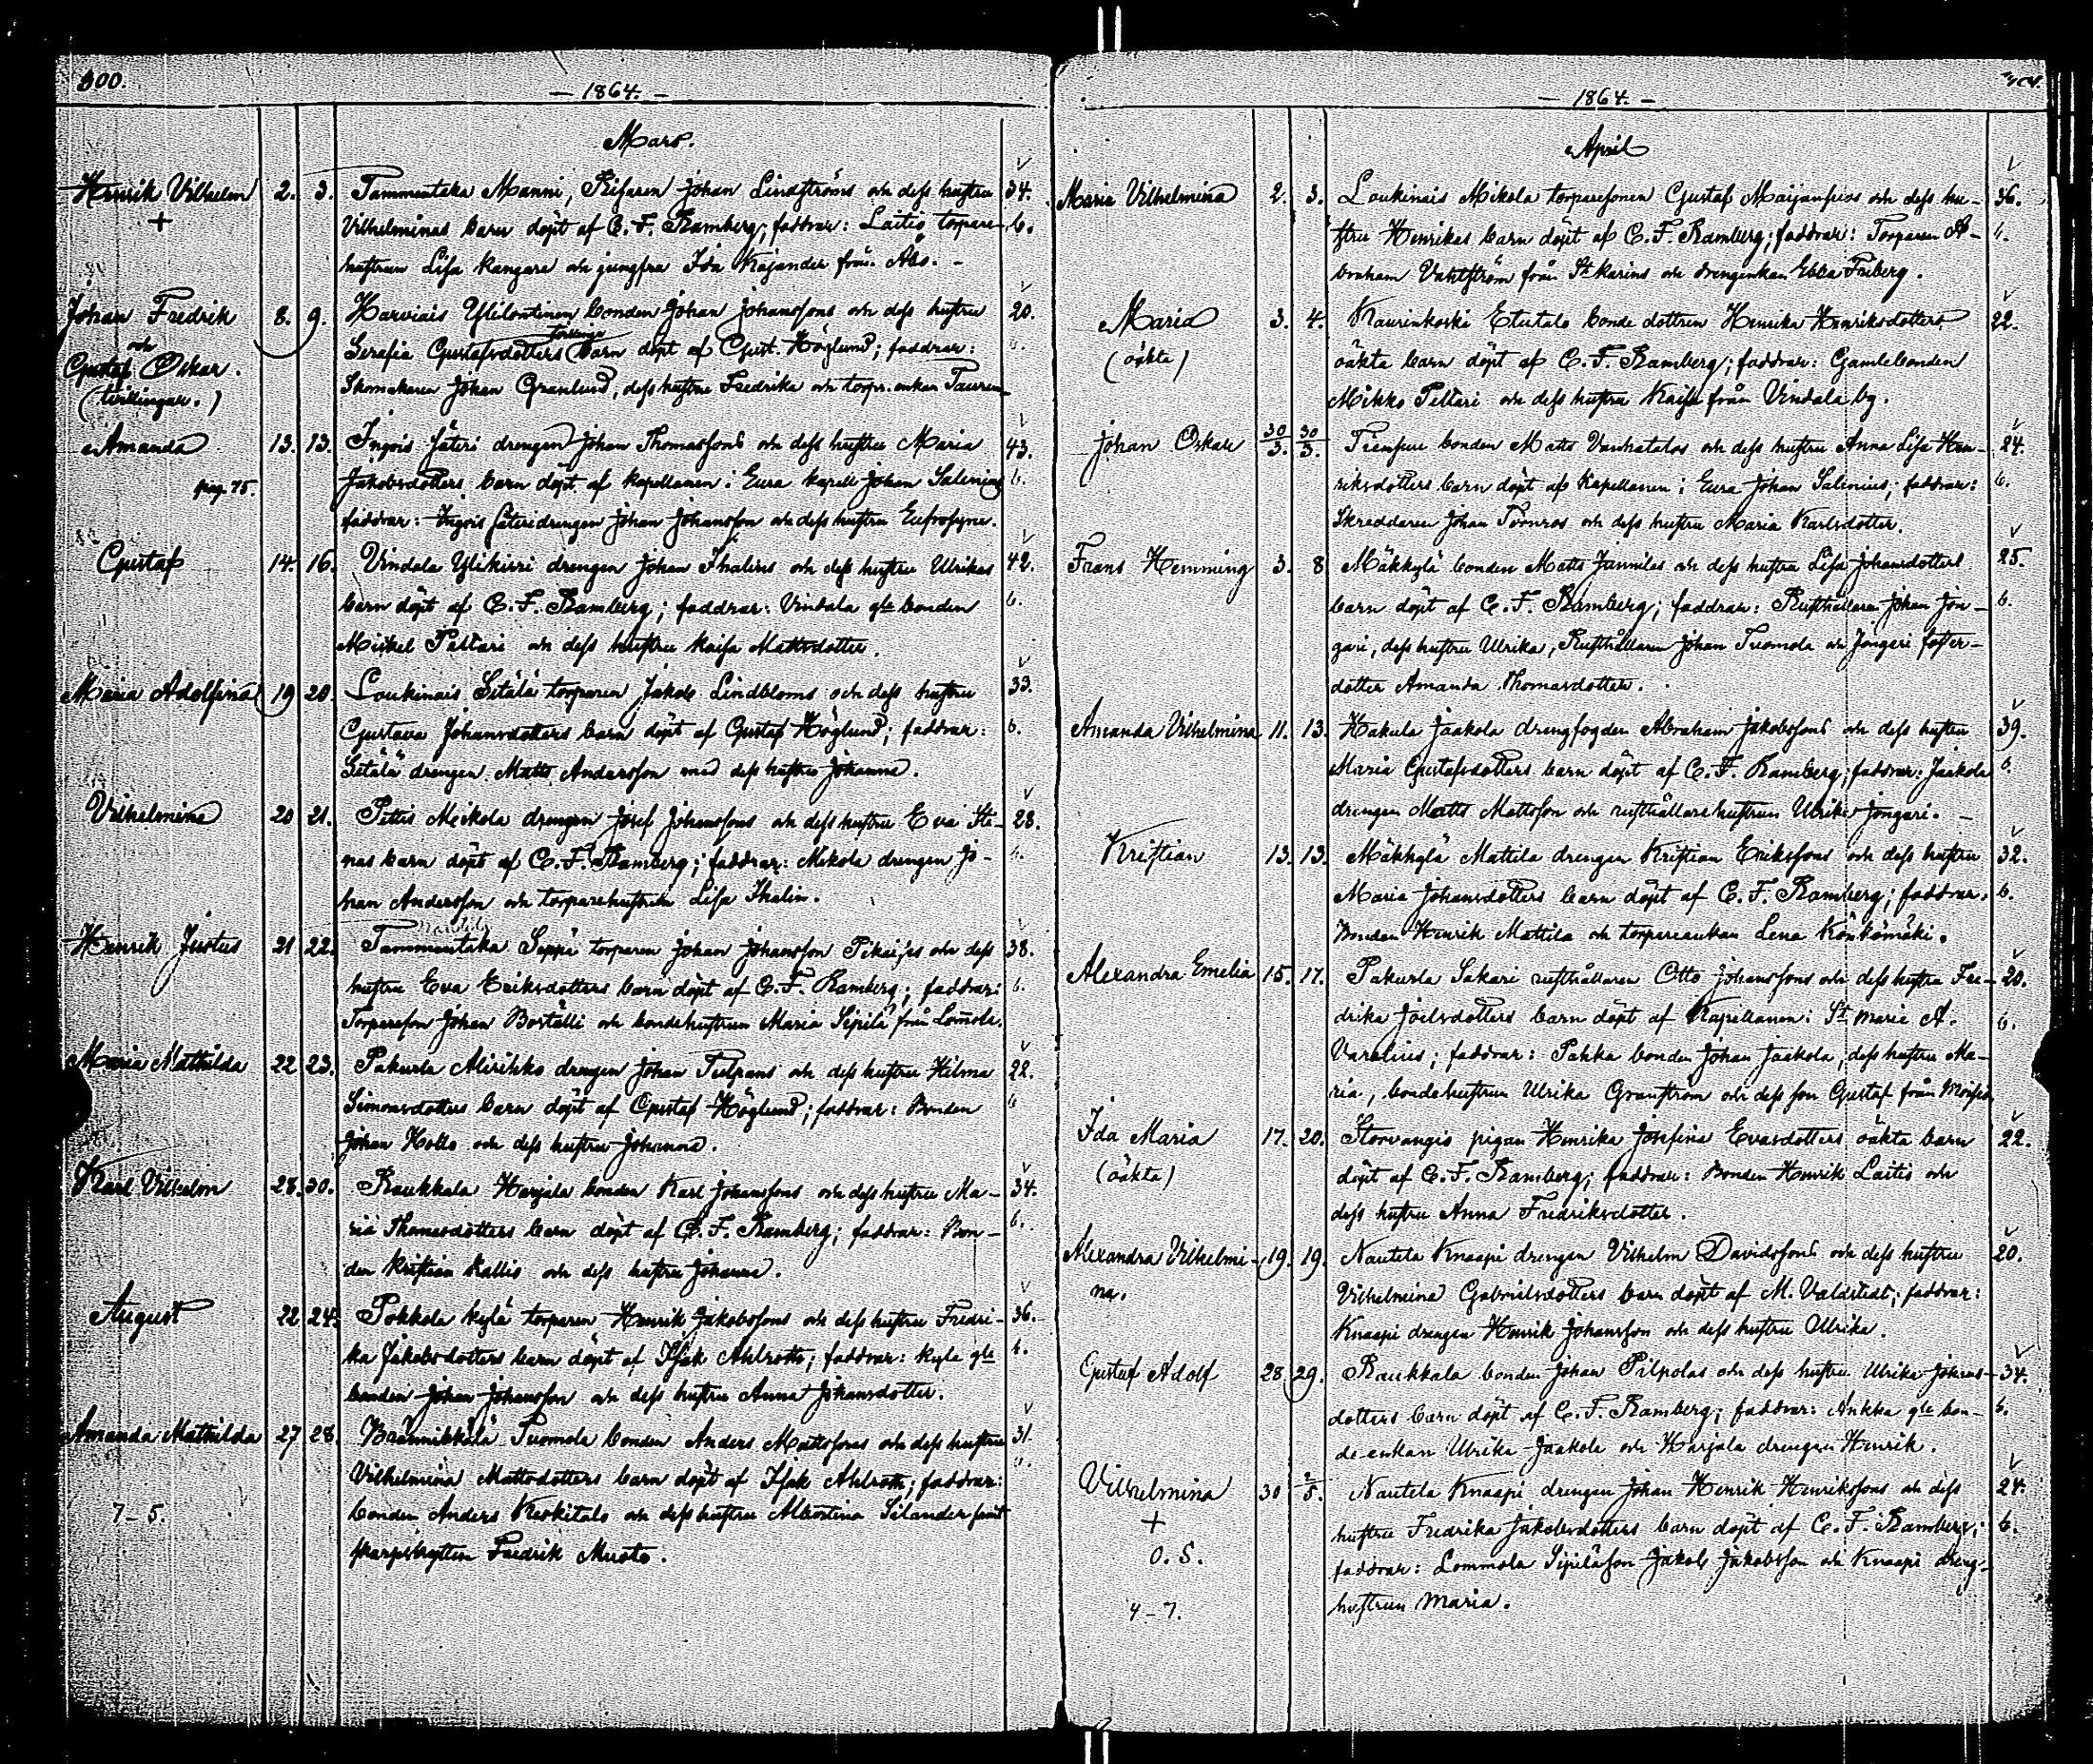 300.
— 1864. —
Mars.
Henrik Vilhelm 2. 3. Tammentaka Manni, Rifaren Johan Lindströms och dess hustru 34.
+ Vilhelminas barn döpt af C. F. Ramberg; faddrar: Laitis torpare- 6.
hustrun Lisa Kangare och jungfru Ida Kajander från Åbo. —
Johan Fredrik 8. 9. Harviais Ylilontinen bonden Johan Johanssons och dess hustru 20.
och Serafia Gustafsdotters barn döpt af Gust. Höglund; faddrar: 6.
Gustaf Oskar.
(tvillingar.) Skomakaren Johan Granlund, dess hustru Fredrika och torpr. enkan
Amanda 13. 13. Ingois säteri drengen Johan Thomassons och dess hustru Maria 43.
pag. 75. Jakobsdotters barn döpt af kapellanen i Eura kapell Johan Salenius 6.
faddrar: Ingois säteridrengen Johan Johansson och dess hustru Eufrosyne.
Gustaf 14. 16. Vindala Ylikirri drengen Johan Thalins och dess hustru Ulrikas 42.
barn döpt af C. F. Ramberg; faddrar: Vindala gle bonden 6.
Mickel Pättäri och dess hustru Kaisa Mattsdotter.
Maria Adolfina 19 20. Loukinais Setälä torparen Jakob Lindbloms och dess hustru 33.
Gustava Johansdotters barn döpt af Gustaf Höglund; faddrar: 6.
Setälä drengen Matts Andersson med dess hustru Johanna.
Vilhelmina 20 21. Pettis Meikola drengen Josef Johanssons och dess hustru Eva Ste- 28.
nas barn döpt af C. F. Ramberg; faddrar: Mekola drengen Jo- 6.
han Andersson och torparehustrun Lisa Thalin.
Henrik Justus 21 22. Tammentaka Seppä torparen Johan Johansson och dess 38.
hustru Eva Eriksdotters barn döpt af C. F. Ramberg; faddrar: 6.
Torpareson Johan Bortälli och bondehustrun Maria Sipilä från Lomola.
Maria Mathilda 22 23. Pakurla Alirihko drengen Johan Tulpans och dess hustru Hilma 22.
Simonsdotters barn döpt af Gustaf Höglund; faddrar: Bonden 6
Johan Hollo och dess hustru Johanna.
Karl Vilhelm 28. 30. Raukkala Harjala bonden Karl Johanssons och dess hustru Ma- 34.
ria Thomasdotters barn döpt af C. F. Ramberg; faddrar: Bon- 6.
den Kristian Kallis och dess hustru Johanna.
August 22 24. Pokkola kylä torparen Henrik Jakobssons och dess hustru Fredri- 36.
ka Jakobsdotters barn döpt af Isak Ahlroth; faddrar: Kylä gle 6.
bonden Johan Johansson och dess hustru Anna Johansdotter.
Amanda Mathilda 27 28. Brännikkälä Tuomola bonden Anders Mattssons och dess hustru 31.
Vilhelmina Mattsdotters barn döpt af Isak Ahlroth; faddrar:
7–5. bonden Anders Keskitalo och dess hustru Albertina Silander samt
skarpskytten Fredrik Musto.
— 1864. —
April
Maria Vilhelmina 2. 3. Loukinais Mikola torparesonen Gustaf och dess hu- 36.
stru Henrikas barn döpt af C. F. Ramberg; faddrar: Torparen A- 6.
braham Vahlström från St Karins och drengenkan Ebba Friberg.
Maria 3. 4. Kaurinkoski Etutalo bonde dottren Henrika Henriksdotters 22.
(oäkta) oäkta barn döpt af C. F. Ramberg; faddrar: Gamlebonden
Mikko Pettäri och dess hustru Kaisa från Vindala by.
Johan Oskar 30/3. 30/3. bonden Matts Vanhatalos och dess hustru Anna Lisa Hen- 24.
riksdotters barn döpt af kapellanen i Eura Johan Salenius; faddrar: 6.
Skreddaren Johan Törnros och dess hustru Maria Karlsdotter.
Frans Hemming 3. 8 Mäkkylä bonden Matts Junnilas och dess hustru Lisa Johansdotters 25.
barn döpt af C. F. Ramberg; faddrar: Rusthållaren Johan Jon- 6.
gari, dess hustru Ulrika, Rusthållaren Johan Tuomola och Jongeri foster-
dotter Amanda Thomasdotter.
Amanda Vilhelmina 11. 13. Hakula Jaakola drengfogden Abraham Jakobssons och dess hustru 39.
Maria Gustafsdotters barn döpt af C. F. Ramberg; faddrar: Jaakola 6.
drengen Matts Mattsson och rusthållarehustrun Ulrika Jongari. —
Kristian 13. 13. Mäkkylä Mattila drengen Kristian Erikssons och dess hustru 32.
Maria Johansdotters barn döpt af C. F. Ramberg; faddrar. 6.
Bonden Henrik Mattila och torpareenkan Lena Könkömäki.
Alexandra Emelia 15. 17. Pakurla Sakari rusthållaren Otto Johanssons och dess hustru Fre- 20.
drika Joelsdotters barn döpt af Kapellanen i St Marie A. 6.
Varelius; faddrar: Pahka bonden Johan Jaakola, dess hustru Ma-
ria, bondehustrun Ulrika Granström och dess son Gustaf från Moisio
Ida Maria 17. 20. Storvangis pigan Henrika Josefina Evasdotters oäkta barn 22.
(oäkta) döpt af C. F. Ramberg; faddrar: Bonden Henrik Laitis och
dess hustru Anna Fredriksdotter.
Alexandra Vilhelmi- 19. 19. Nautela Knaapi drengen Vilhelm Davidssons och dess hustru 20.
na. Vilhelmina Gabrielsdotters barn döpt af M. Valdstedt; faddrar:
Knaapi drengen Henrik Johansson och dess hustru Ulrika.
Gustaf Adolf 28 29. Raukkala bonden Johan Pilpolas och dess hustru Ulrika Johans- 34.
dotters barn döpt af C. F. Ramberg; faddrar: Ankka gle bon- 6.
de enkan Ulrika Jaakola och Harjala drengen Henrik.
Vilhelmina 30 2/5. Nautela Knaapi drengen Johan Henrik Henrikssons och dess 24.
+ hustru Fredrika Jakobsdotters barn döpt af C. F. Ramberg; 6.
0. 5. faddrar: Lommola Sipiläson Jakob Jakobsson och Knaapi dreng-
4–7. hustrun Maria.